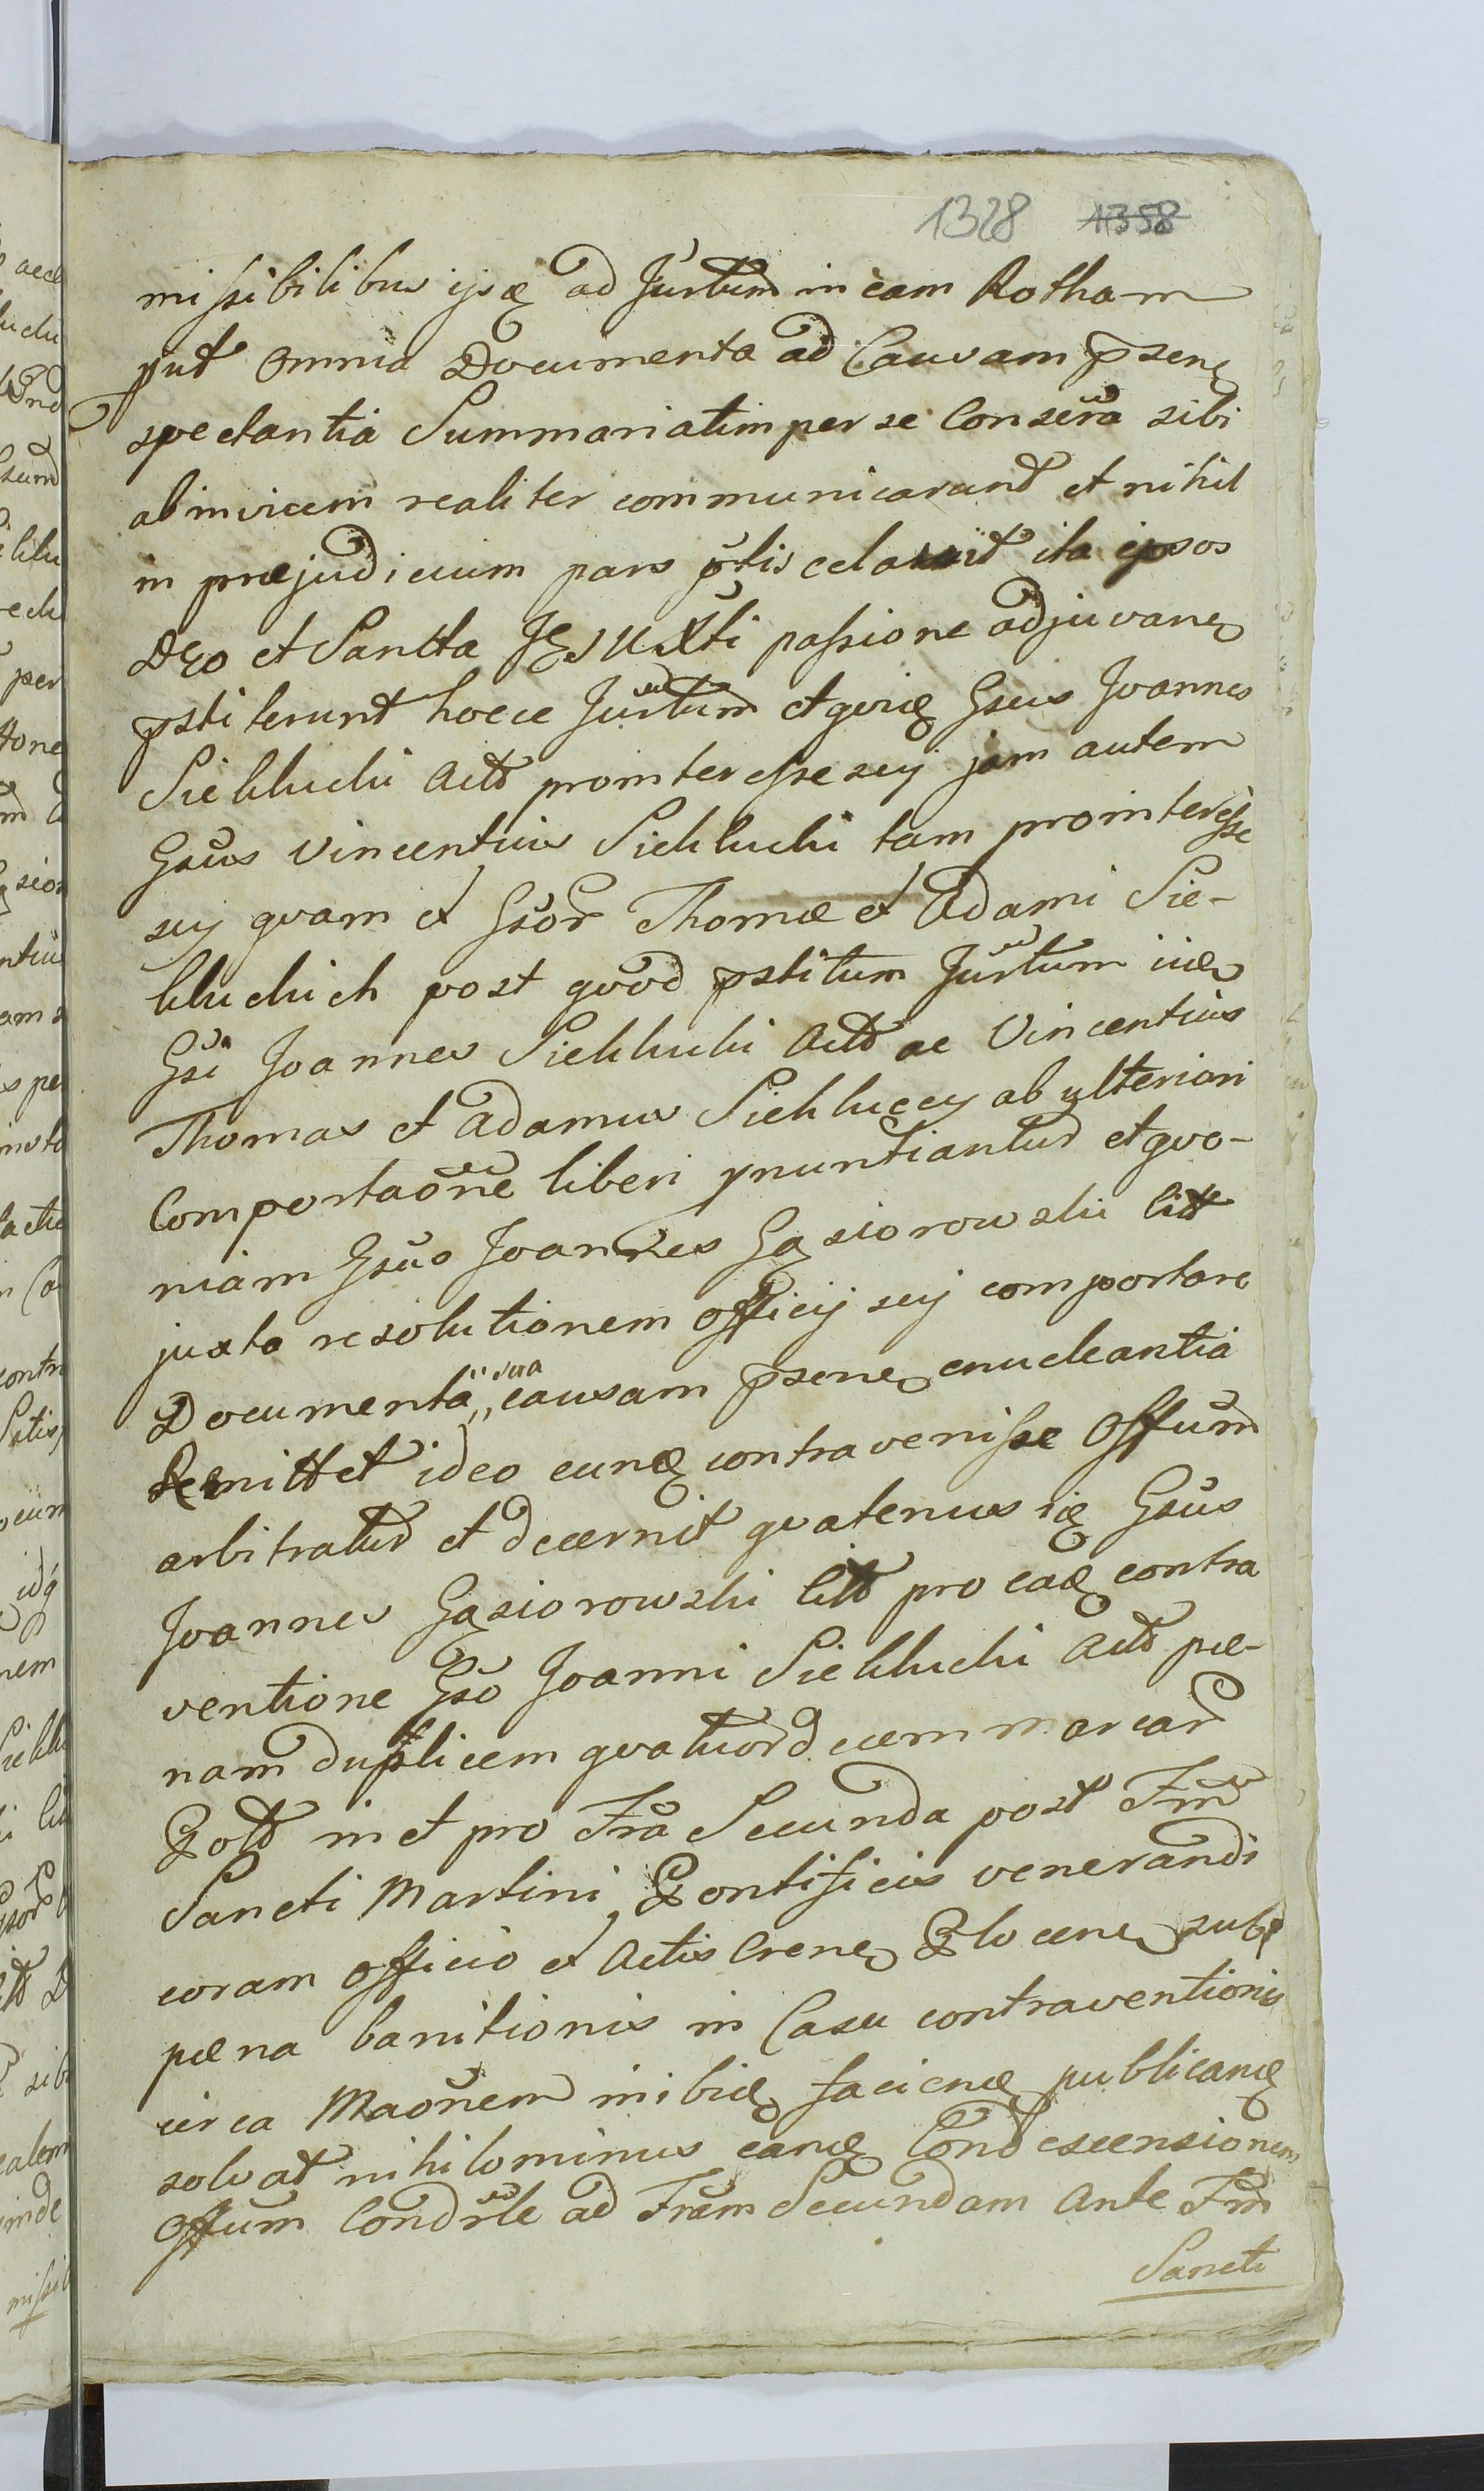 1328 1358
missibilibus ijsq ad Jurtum in eam Rotham
put omnia Documenta ad Causam psenq
spectantia Summariatim per se Conserta sibi
abinvicem realiter communicarunt et nihil
in præjudicium pars ptis celavit ita ipsos
DEo et Sancta JESU Xti passione adjuvanq
pstiterunt hocce Jurtum et Gsus Joannes
Sieklucki Actd prointeresse suj jam autem
Gsus Vincentius Sieklucki tam prointeresse
suj qvam et Gsor Thomæ et Adami Sie-
kluckich post qvod pstitum Jurtum
Gsi Joannes Sieklucki Actd ac Vincentius
Thomas et Adamus Sieklucey ab ulteriori
Comportaone liberi pnuntiantur et qvo-
niam Gsus Joannes Gąsiorowski Citt
juxta resolutionem officij suj comportare
Documenta sua causam psenq enucleantia
Remittet ideo eunq contravenisse Offum
arbitratur et decernit qvatenus iq Gsus
Joannes Gąsiorowski Citt pro eaq contra
ventione Gso Joanni Sieklucki Actd pæ-
nam duplicem qvatuordecem marcar
Polt in et pro Fra Secunda post Fm
Sancti Martini Pontificis venerandi
coram officio et Actis Crenq Plocenq sub
pæna banitionis in Casu contraventionis
circa Maonem inibiq facienq publicanq
solvat nihilominus eanq Condescensionem
Offum Condrle ad Fram Secundam Ante Fm
Sancti